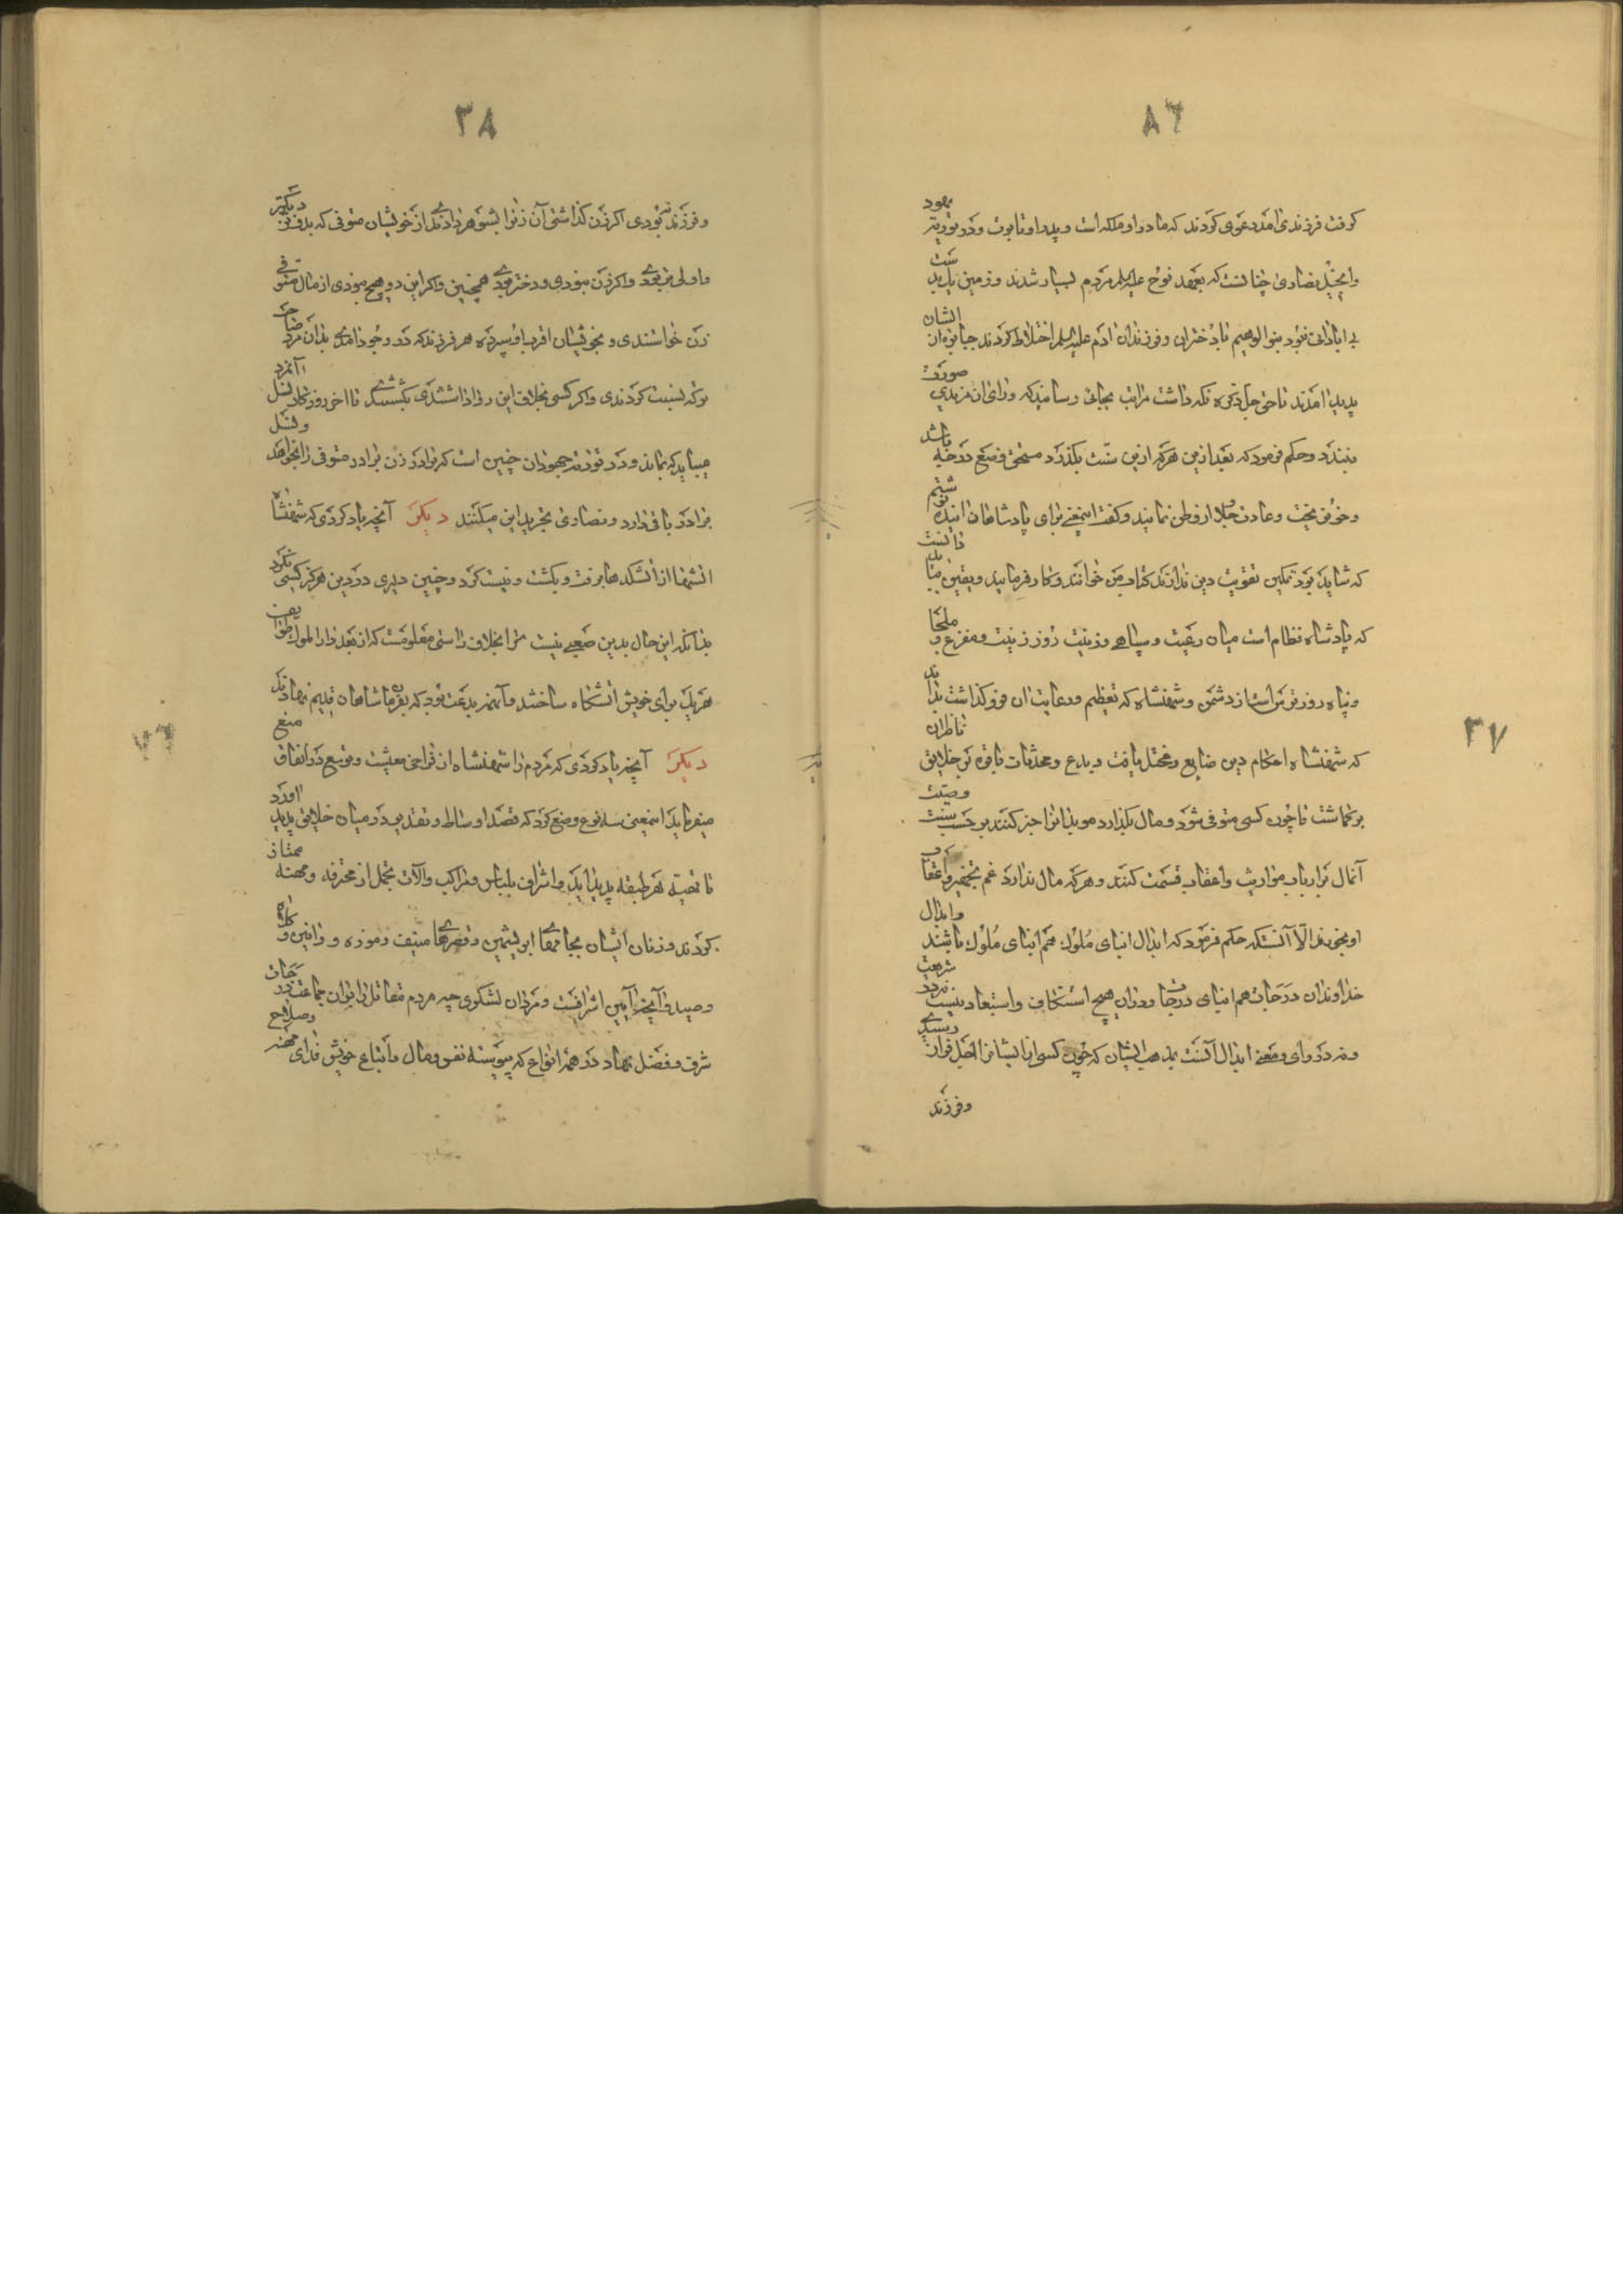 ٨٦
کرفت فرزندی آمد دعوی کردند که مادر او ملکه است و پدر او تابوت و در توریة یهود
وانجیل نصاری چنانست که بعهد نوح علیه السلم مردم بسیار شدند و زمین بدید
بی ابادانی نبود بنوالوهیم با دختران و فرزندان ادم علیه السلم اختلاط کردند جبابره از ایشان
پدید امدند تا حق جل ذکره نکه داشت مراتب بجایی رسانید که ورای ان مزیدی صورت
نبندد و حکم فرمود که بعد ازین هرکه ازین سنت بکذرد مستحق وضع درجه باشد
و خون ریختن و غارت و جلا از وطن نمایند و کفت اینمعنی برای پادشاهان اینده نوشتم
که شاید بود تمکین تقویت دین ندارند کتاب من خوانند و کار فرمایند و یقین بباید دانست
که پادشاه نظام است میان رعیت و سپاهی و زینت روز زینت و مفزع و ملجا
و پناه روز ترس است از دشمن و شهنشاه که تعظیم و رعایت ان فرو کذاشت بداند
٣٧
که شهنشاه احکام دین ضایع و مختل یافت و بدع و محدثات باقوه بر خلایق ناظران
بر کماشت تا چون کسی متوفی شود و مال بکذارد موبدانرا خبر کنند بر حسب سنت وصیت
آنمال بر ارباب مواریث و اعقاب قسمت کنند و هرکه مال ندارد غم تجهیز و اعقاب
او بخورند الا آنستکه حکم فرمود که ابدال ابنای ملوک همه ابنای ملوک باشند و ابدال
خداوندان درجات هم ابنای درجات و درین هیچ استنکاف و استبعاد نیست نزدد شریعت
و نه در رای و معنی ابدال آنست بمذهب ایشان که چون کسی از ایشانرا اجل فراز رسیدی
و فرزند
٣٨
و فرزند نبودی اکر زن کذاشتی آن زنرا بشوهر دادندی از خویشان متوفی که بدو نزدیکتر
و اولی تر بودی و اکر زن نبودی و دختر بودی همچنین و اکر این دو هیچ نبودی از مال متوفی
زن خواستندی و بخویشان اقرب او سپرده هر فرزند که در وجود آمدی بدان مرد صاحب
ترکه نسبت کردندی و اکر کسی بخلاف این روا داشتندی بکشتندی تا اخر روزکار نسل آنمرد
میباید که بماند و در توریة جهودان چنین است که برادر زن برادر متوفی را بخواهد و نسل
برادر باقی دارد و نصاری تحریم این میکنند دیکر آنچه یاد کردی که شهنشاه
اتشها از اتشکدها برفت و بکشت و نیست کرد و چنین دلیری در دین هرکز کسی نکرد
بدانکه این حال بدین صعبی نیست ترا بخلاف راستی معلومست که از بعد دارا ملوک طوایف
هریک برای خویش اتشکاه ساختند و آنهمه بدعت بود که بی فرمان شاهان قدیم نهادند
دیکر آنچه یاد کردی که مردم را شهنشاه از فراخی معیشت و توسع در انفاق منع
میفرماید اینمعنی سنه و وضع کرد که قصد اوساط و تقدیر در میان خلایق پدید آورد
تا تهیه هر طبقه پدید آید و اشراف بلباس و مراکب و الات تجمل از محترفه و مهنه ممتاز
کردند و زنان ایشان بجامهای ابریشمین و قصرها منیف و موزه و رانین و کلاه
و صید و آنچه آیین اشرافست و مردان لشکری چه مردم مقاتل را بر ان جماعت درجات
شرف و فضل نهاد در همه انواع که پیوسته نفس و مال و اتباع خویش فدای مهنه و صلاح